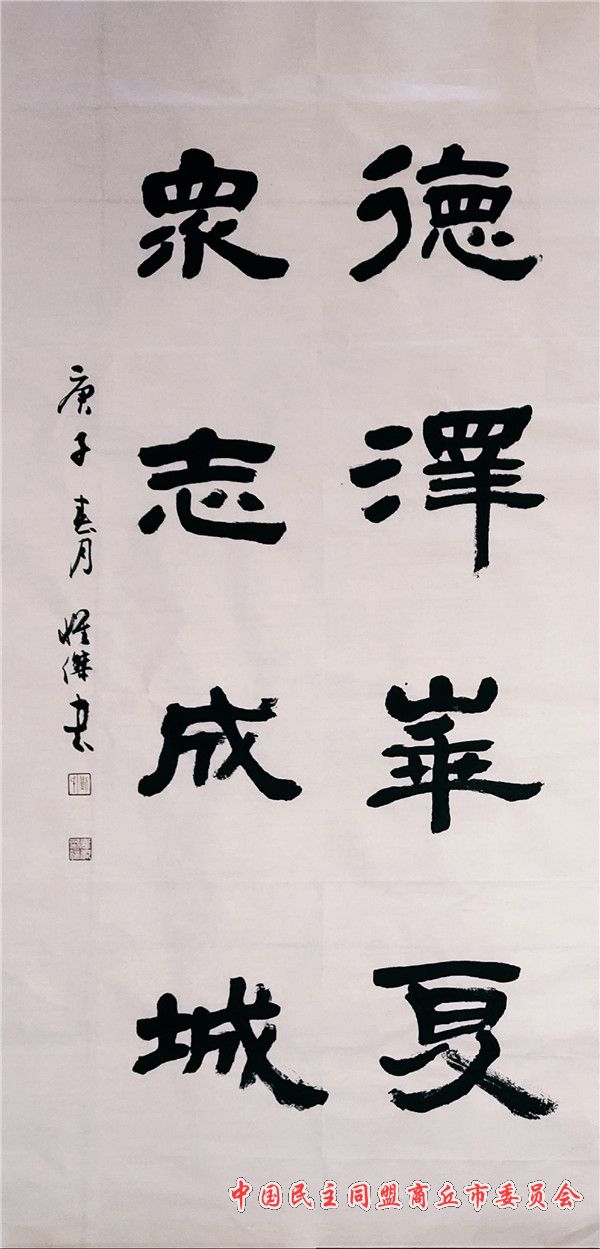 德澤華夏
眾志成城
庚子春月
傑書
中国民主同盟商丘市委员会